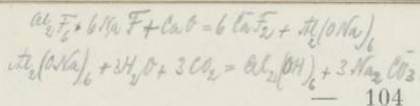 Al₂F₆ · 6 Na F + CaO = 6 CaF₂ + Al₂(ONa)₆
Al₂(ONa)₆ + 3H₂O + 3CO₂ = Al₂(OH)₆ + 3 Na₂ CO₃
— 104